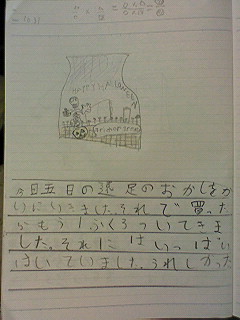 HAPPY HALLOWEEN
今日五日の遠足のおかしをか
いにいきました。それで買った
らもう1ふくろついてきま
した。それにはいっぱい
はいていました。うれしかった